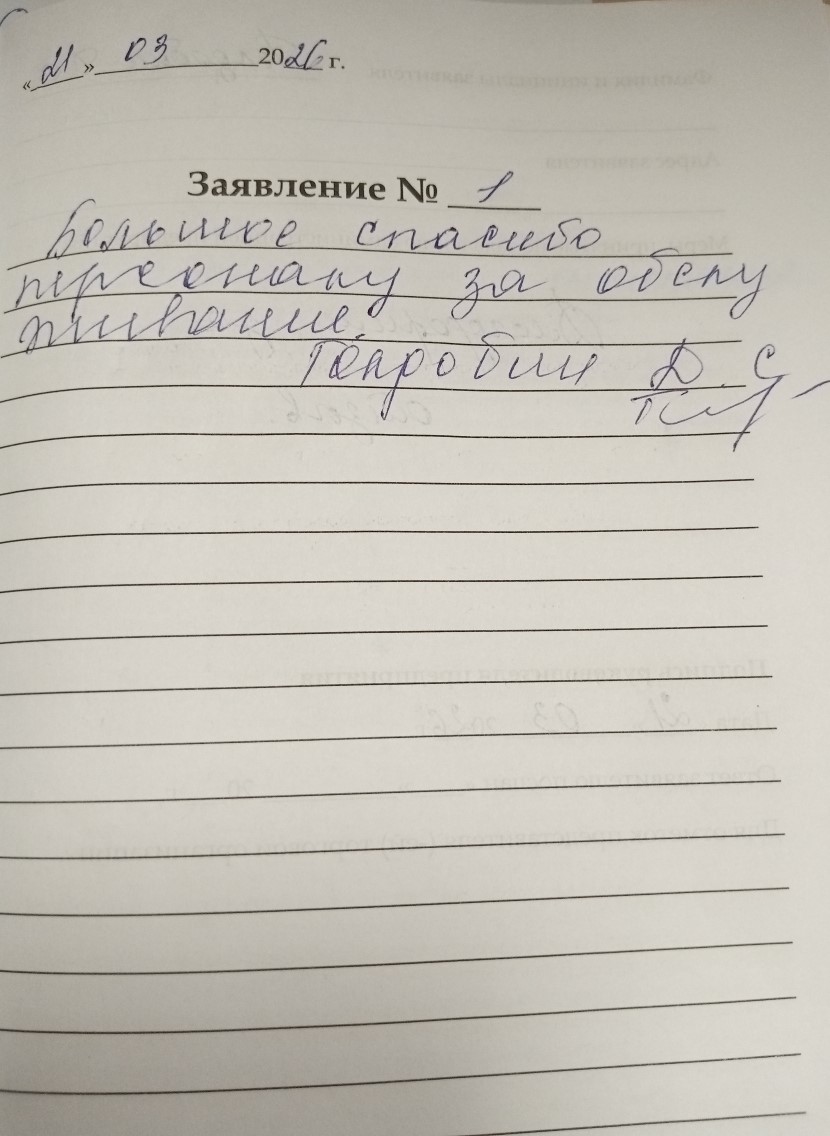 «21» 03 2026 г.
Заявление № 1
Большое спасибо
персоналу за обслу
живание.
Д. С